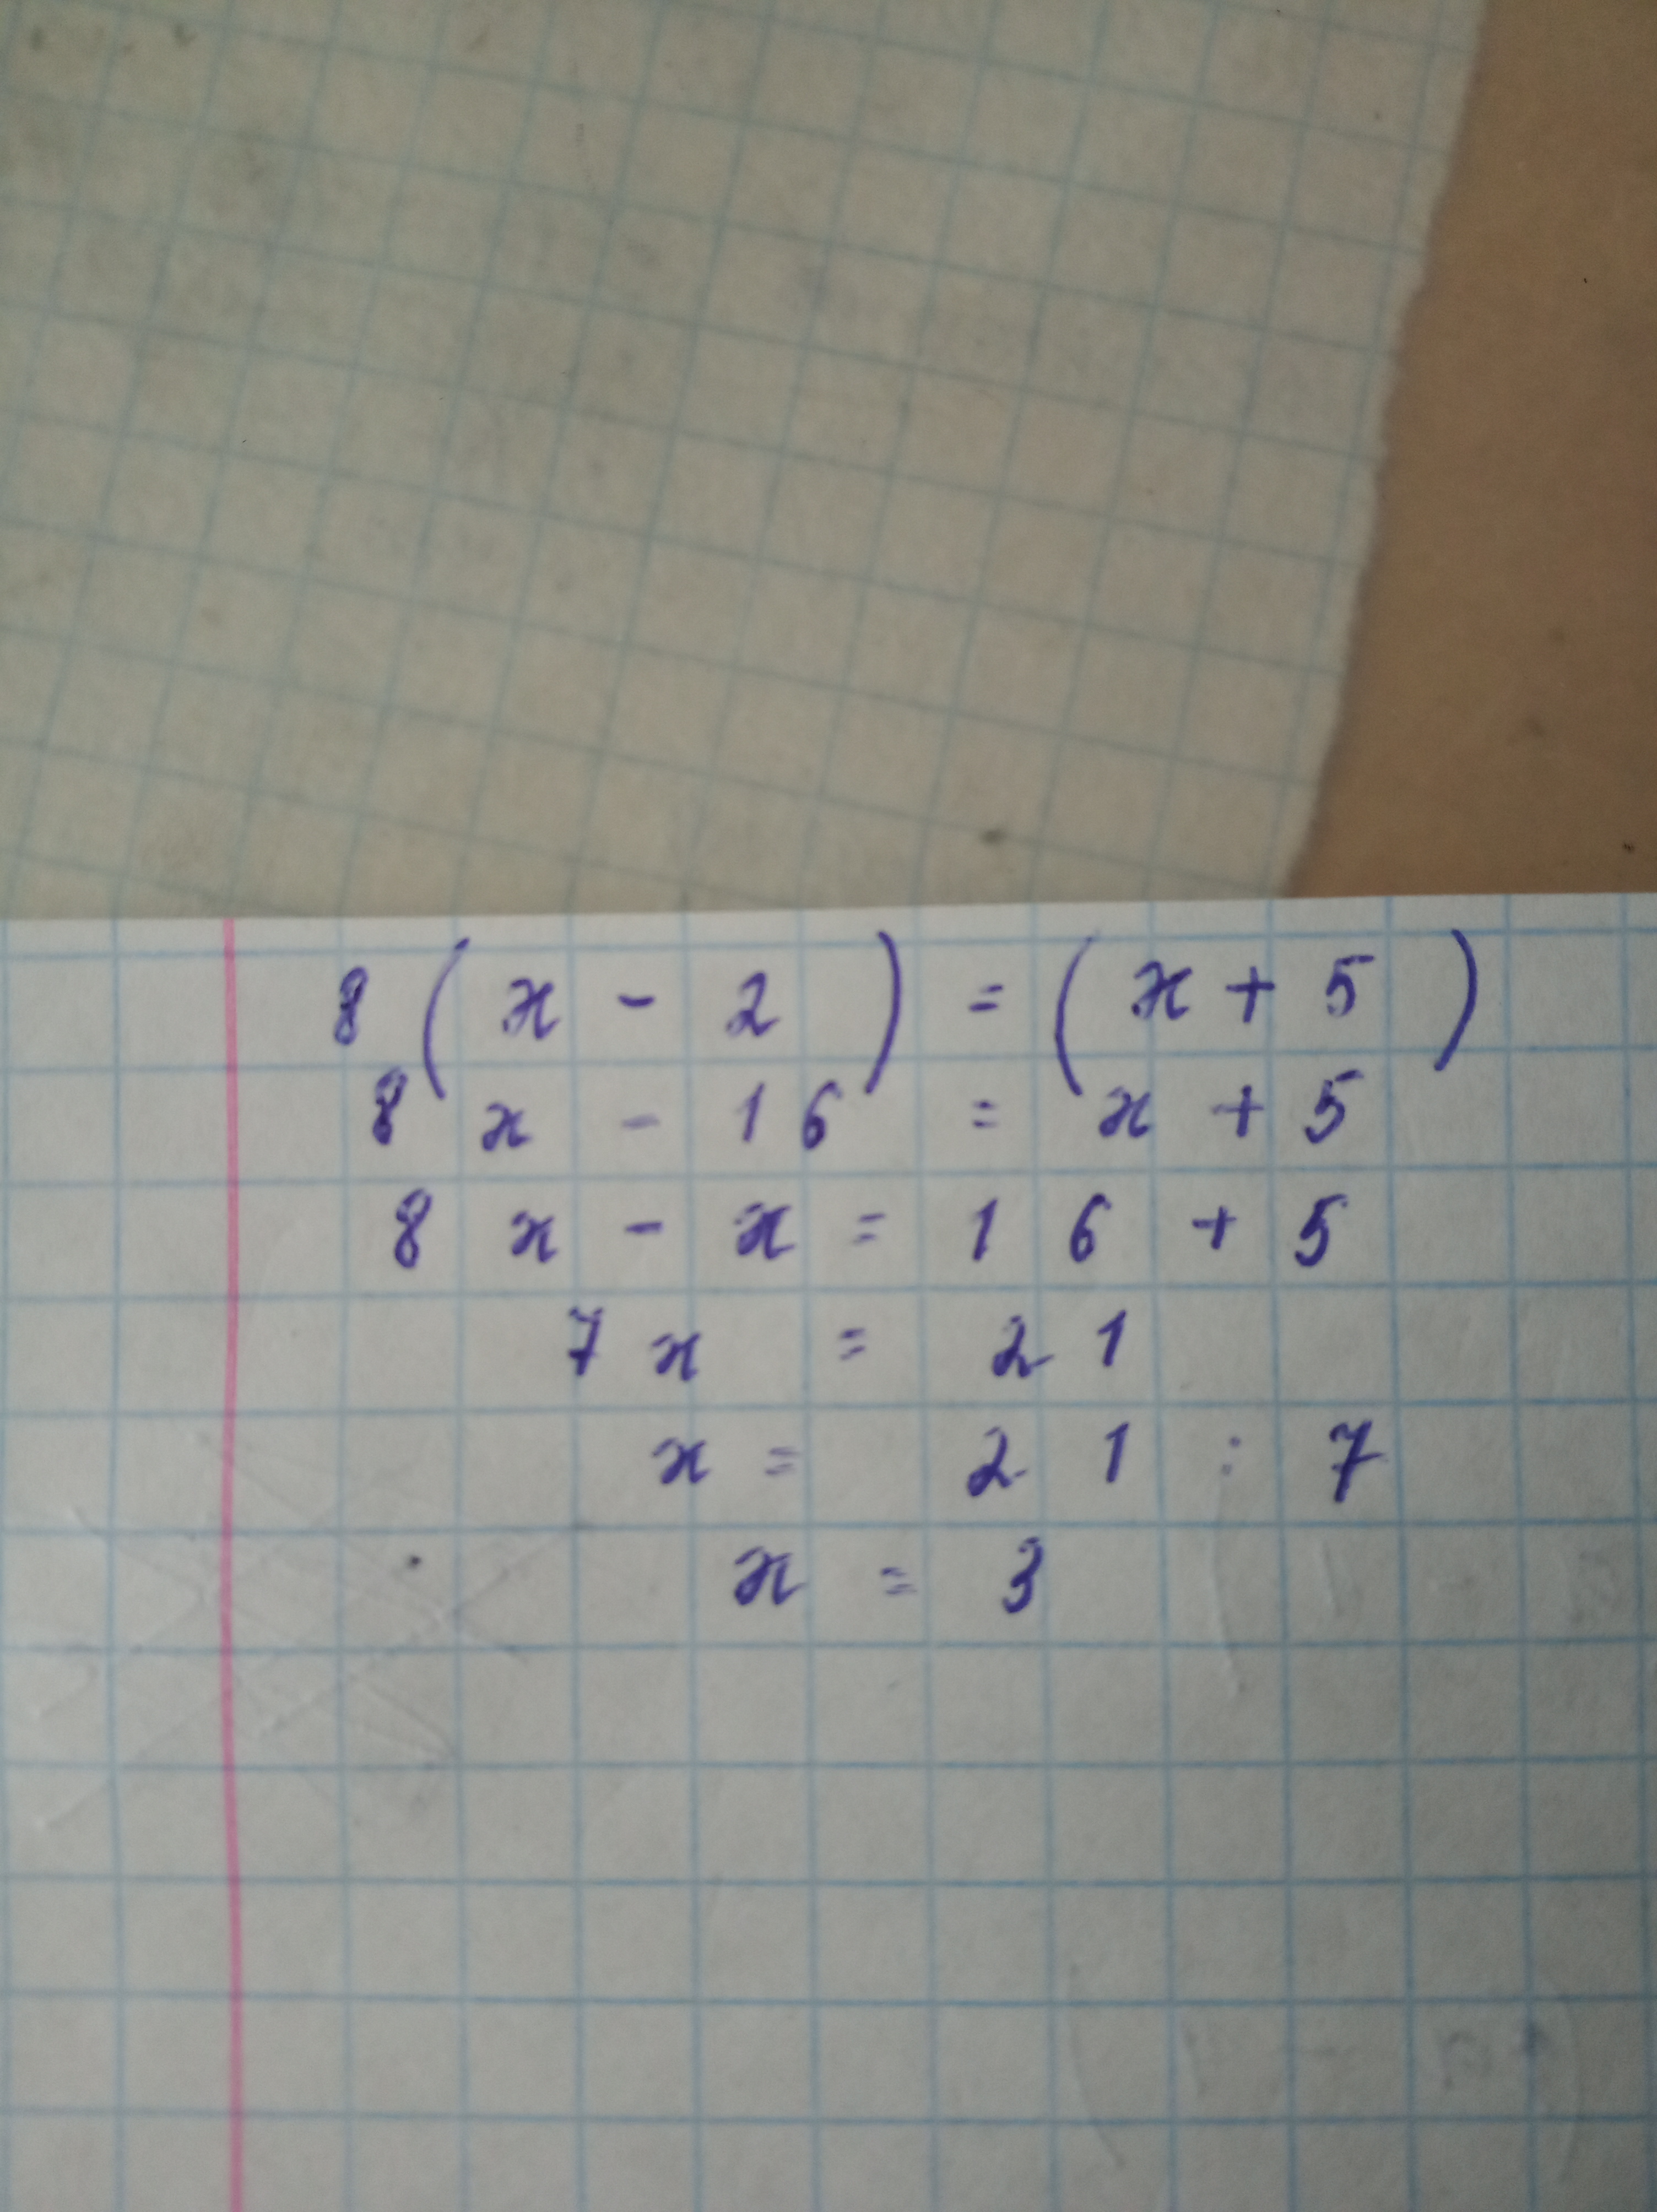 8(x - 2) = (x + 5)
8x - 16 = x + 5
8x - x = 16 + 5
7x = 21
x = 21 : 7
x = 3